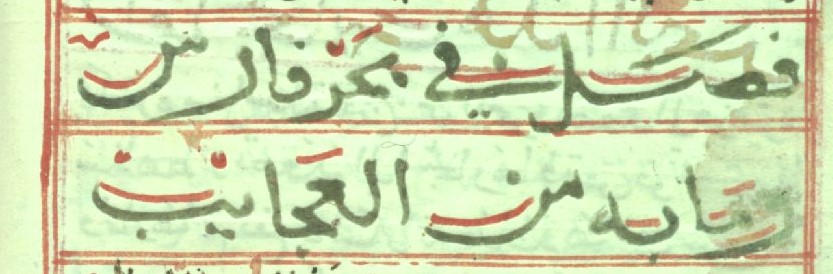 فصل في بحر فارس
وما به من العجايب